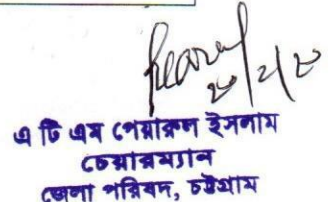 ২০/২/২০
এ টি এম পেয়ারুল ইসলাম
চেয়ারম্যান
জেলা পরিষদ, চট্টগ্রাম